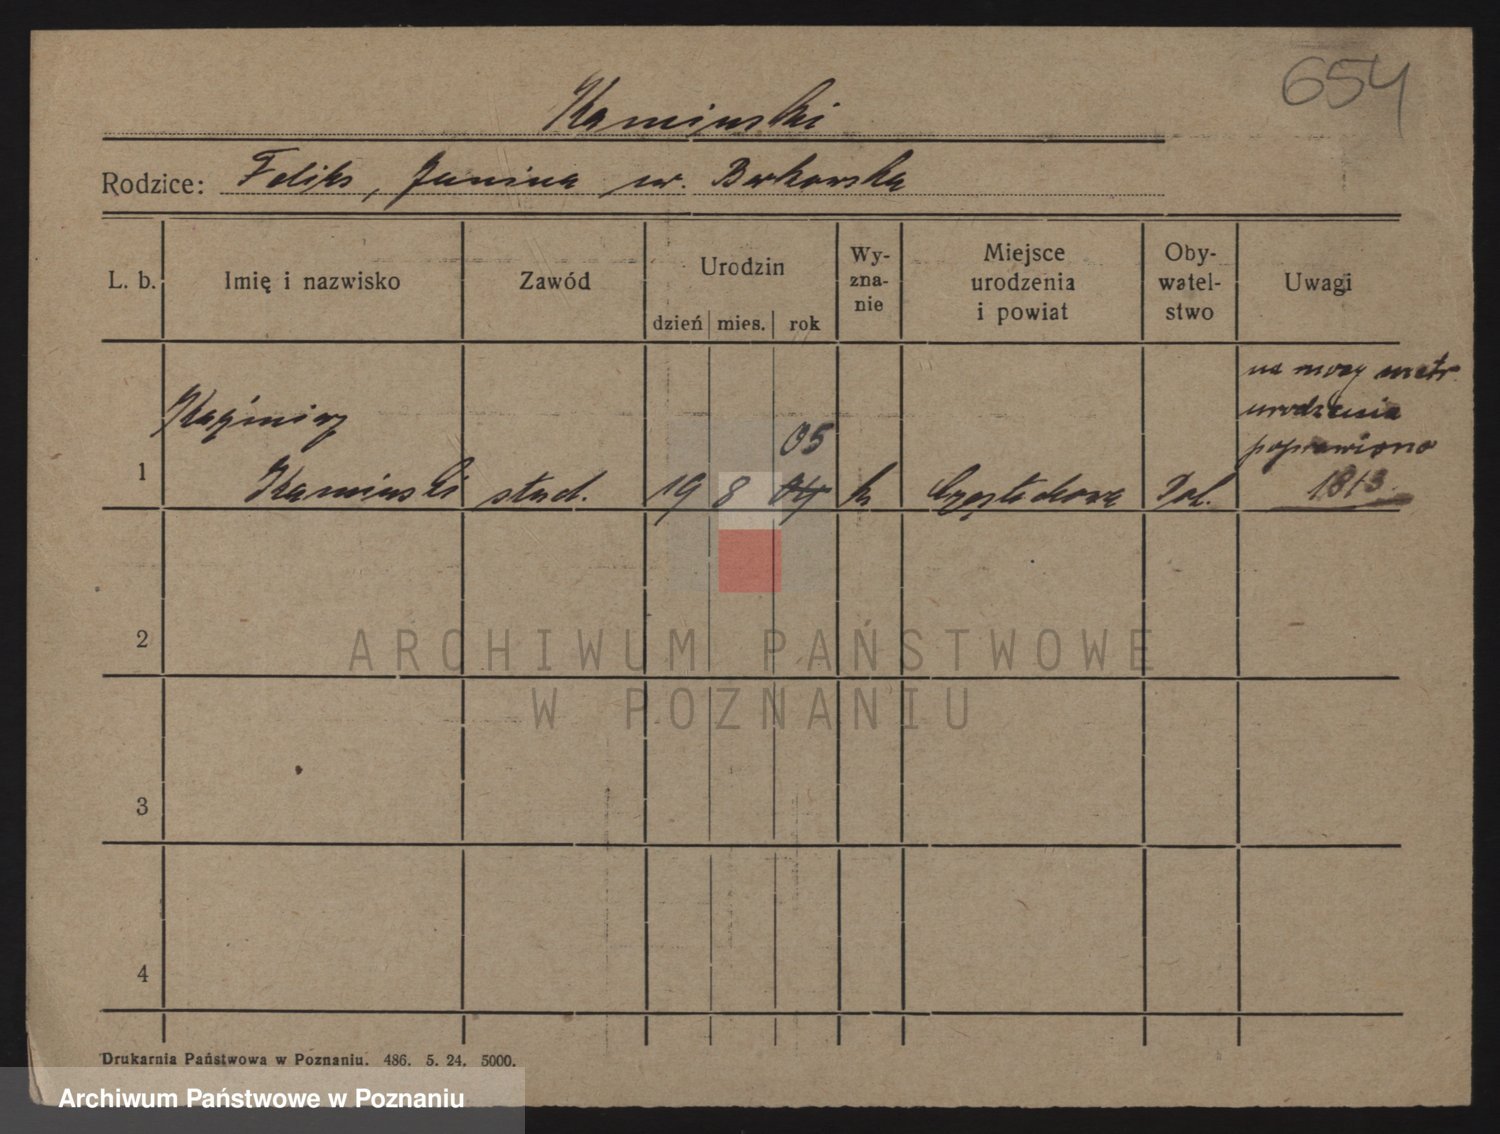 654
Kaminski
Rodzice: Feliks, Janina ur. Borkowska
L. b. Imię i nazwisko Zawód Urodzin dzień mies. rok Wy-zna-nie Miejsce urodzenia i powiat Oby-watel-stwo Uwagi
na mocy metr.
urodzenia
poprawiono
1813
Kaźmierz
05
1 Kaminski stud. 19 8 04 k Częstochowa Pol.
2
3
4
ARCHIWUM PAŃSTWOWE
W POZNANIU
Drukarnia Państwowa w Poznaniu. 486. 5. 24. 5000.
Archiwum Państwowe w Poznaniu